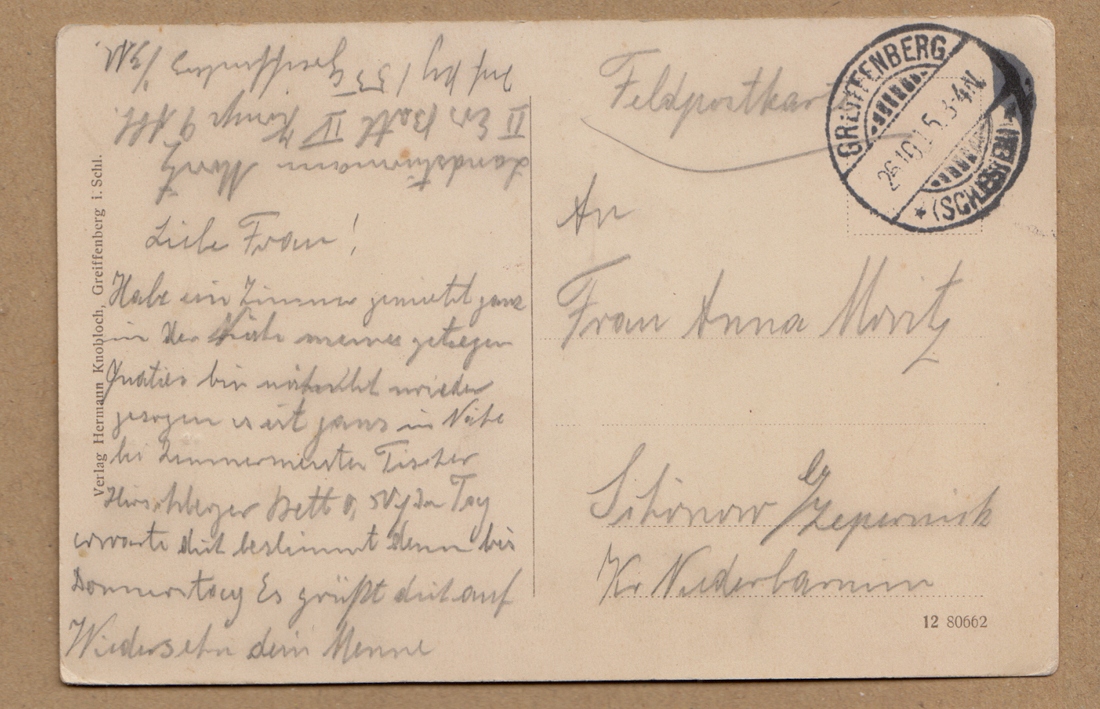 Landsturmmann Moritz
II Ers Batl IV Komp 9 Abt.
Inf Reg 153
Liebe Frau!
Habe ein Zimmer gemietet ganz
in der Nähe meines
bin wieder
gezogen es ist ganz in Nähe
bei Zimmermeister Tischer
Hirschberger Bett 0,50 der Tag
erwarte dich bestimmt denn bis
Donnerstag Es grüßt dich auf
Wiedersehn dein Menne
Verlag Hermann Knobloch, Greiffenberg i. Schl.
Feldpostkarte
GREIFFENBERG
26.10.15.3-4N.
* (SCHLESIEN) *
An
Frau Anna Moritz
Schönow b/Zepernick
Kr Niederbarnim
12 80662